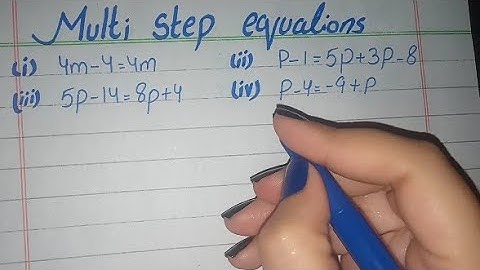 Multi step equations
(i) 4m-4=4m (ii) P-1=5p+3p-8
(iii) 5p-14=8p+4 (iv) P-4=-9+P